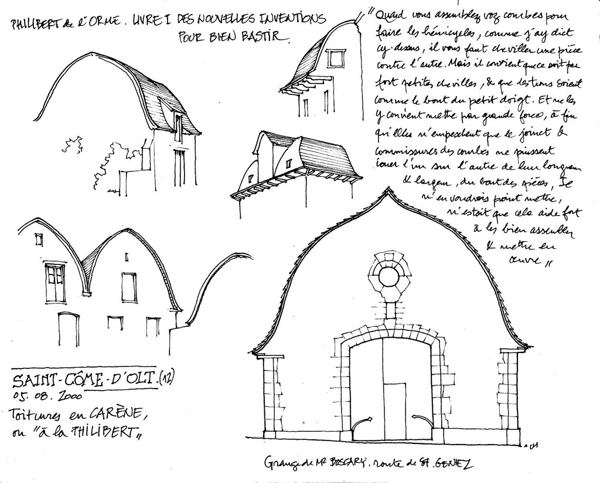 PHILIBERT de L'ORME. LIVRE I DES NOUVELLES INVENTIONS
POUR BIEN BASTIR.
"Quand vous assemblez voz courbes pour
faire les hémicycles, comme j'ay dict
cy-dessus, il vous faut cheviller une pièce
contre l'autre. Mais il convient que ce soit par
fort petites chevilles, & que les tems soient
comme le bout du petit doigt. Et ne les
y convient mettre par grande force, à fin
qu'elles n'empeschent que le joinct &
commissures des courbes ne puissent
jouer l'un sur l'autre de leur longueur
& largeur, du bout des pièces, Je
n'en voudrois point mettre,
n'estoit que cela aide fort
à les bien assembler
& mettre en
œuvre"
SAINT-CÔME-D'OLT.(12)
05.08.2000
Toitures en CARÈNE,
ou "à la PHILIBERT"
Grange de Mr BOSCARY. route de St. GENIEZ